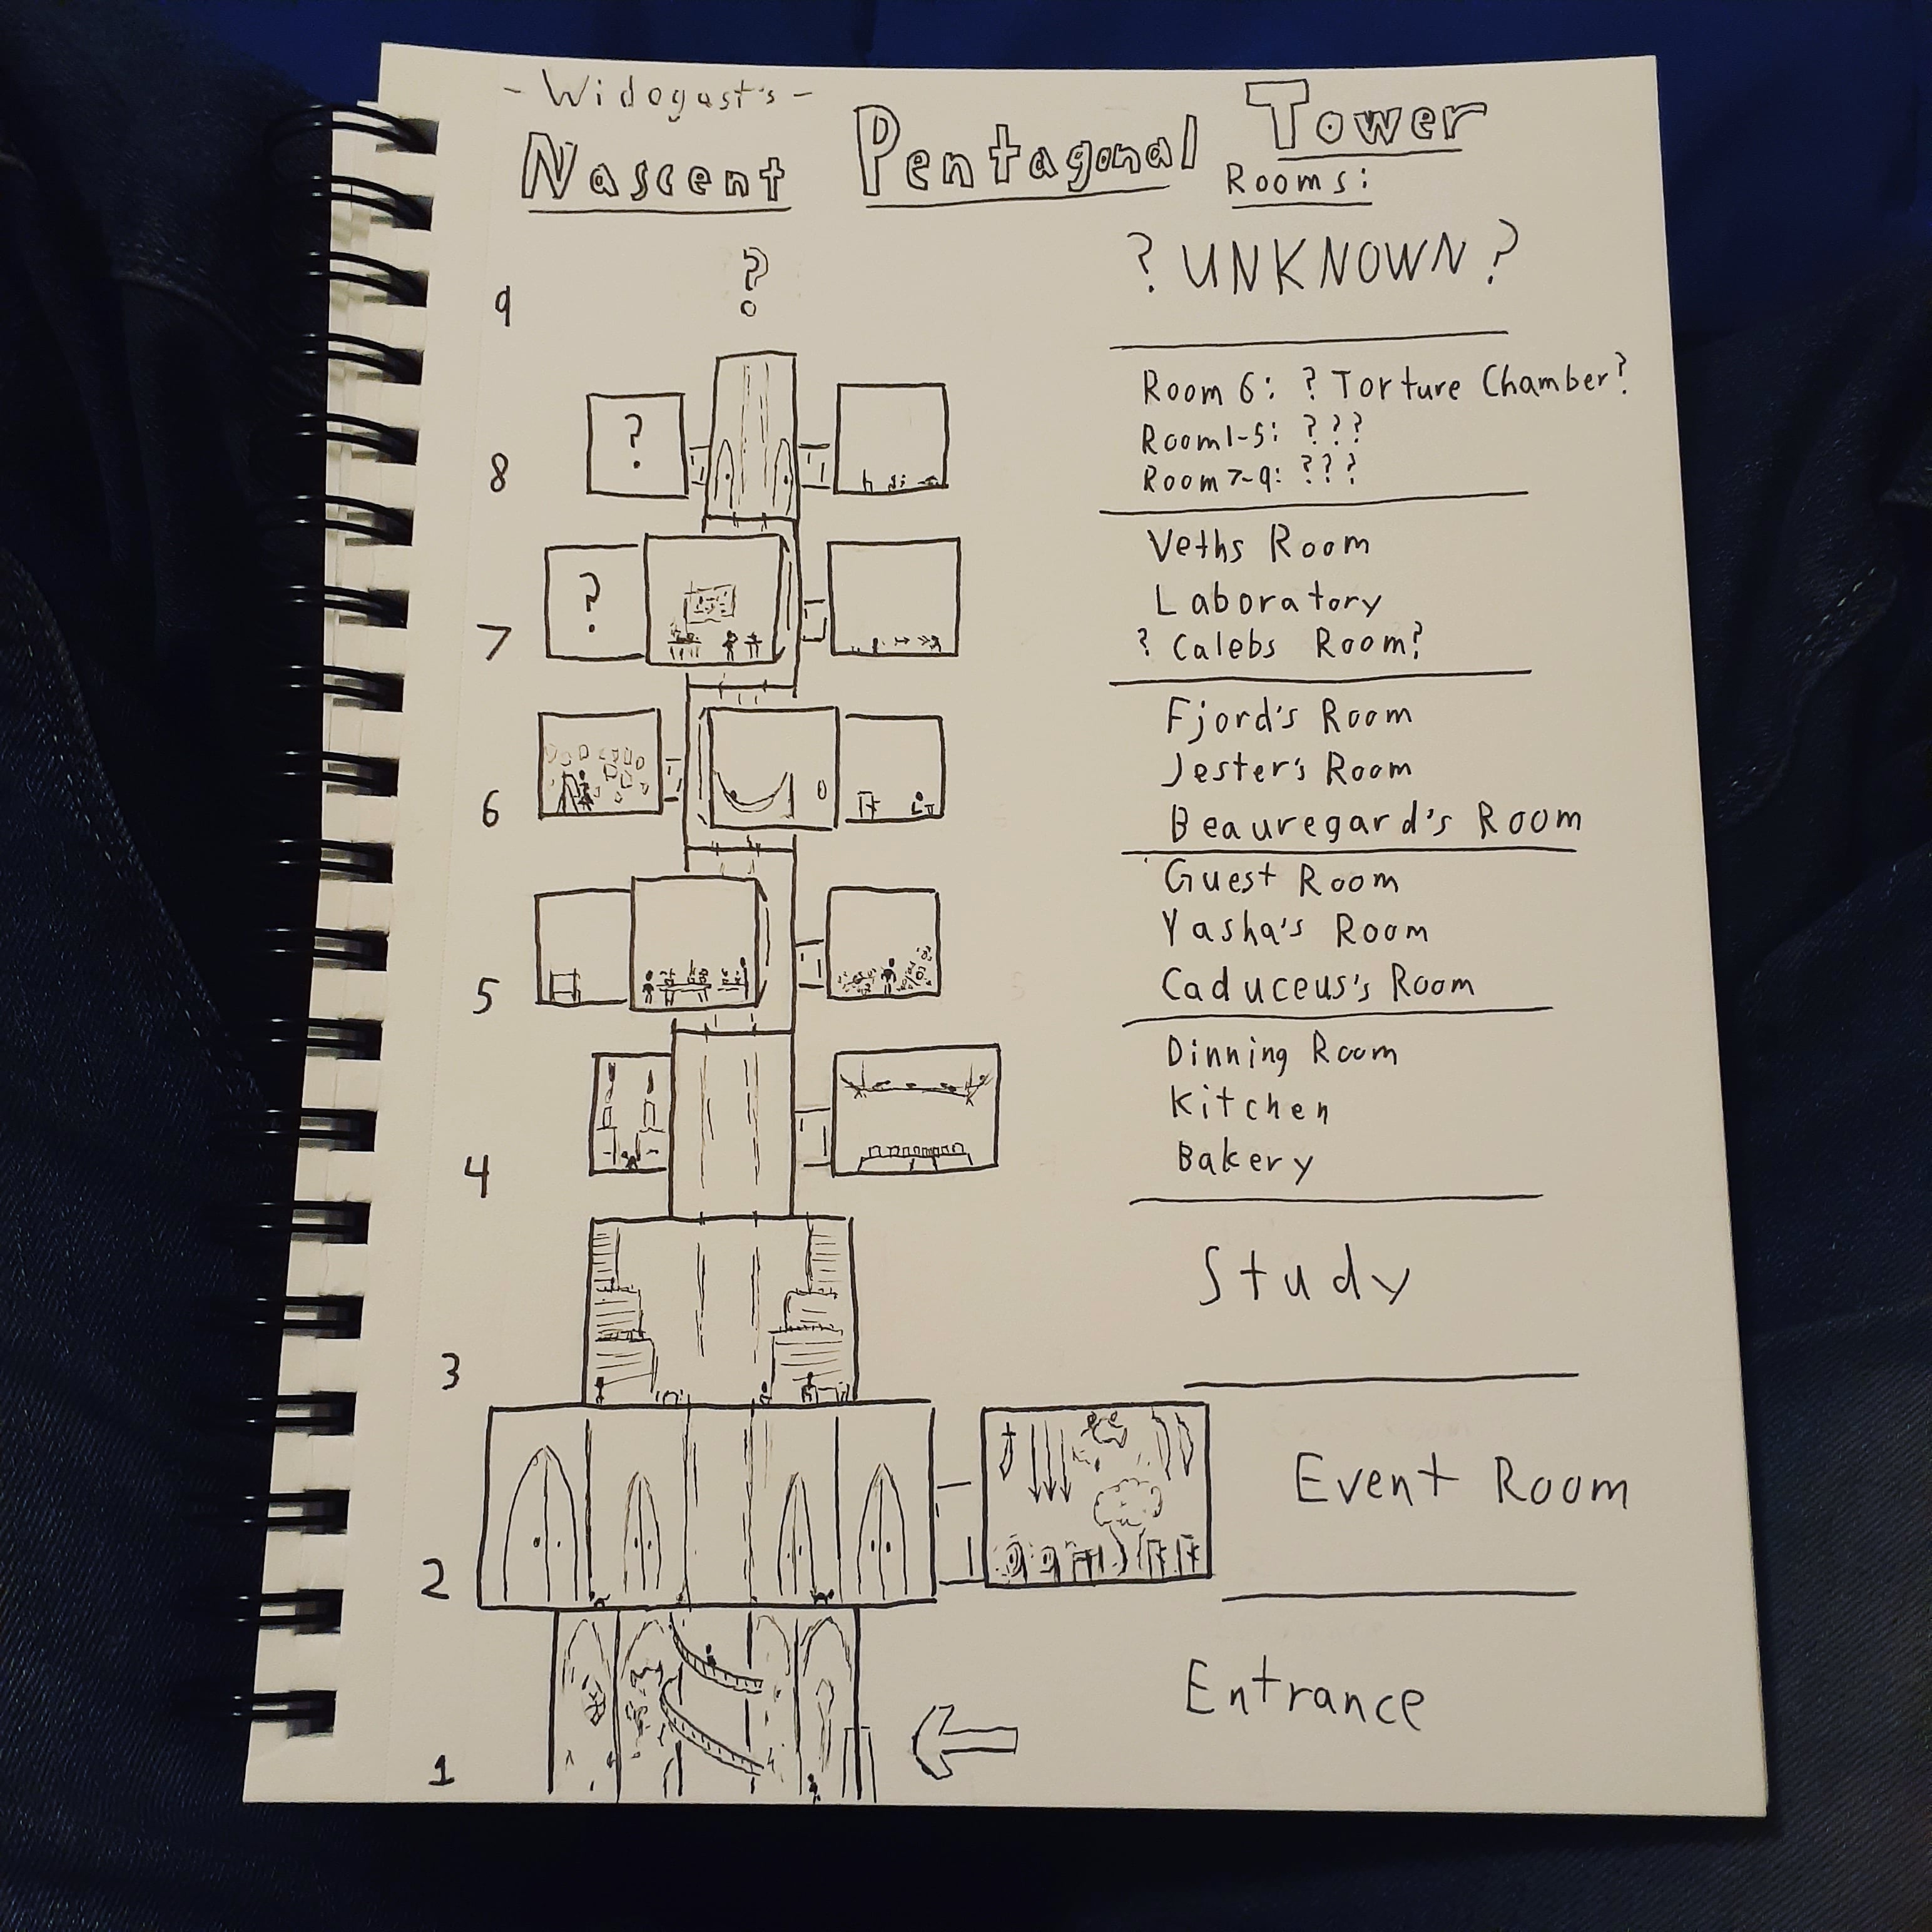 - Widogast's -
Nascent Pentagonal Tower
Rooms:
9 ? ? UNKNOWN ?
Room 6: ? Torture Chamber?
Room 1-5: ? ? ?
8 ? Room 7-9: ? ? ?
Veths Room
Laboratory
7 ? ? Calebs Room?
Fjord's Room
Jester's Room
6 Beauregard's Room
Guest Room
Yasha's Room
5 Caduceus's Room
Dinning Room
Kitchen
4 Bakery
Study
3
Event Room
2
Entrance
1